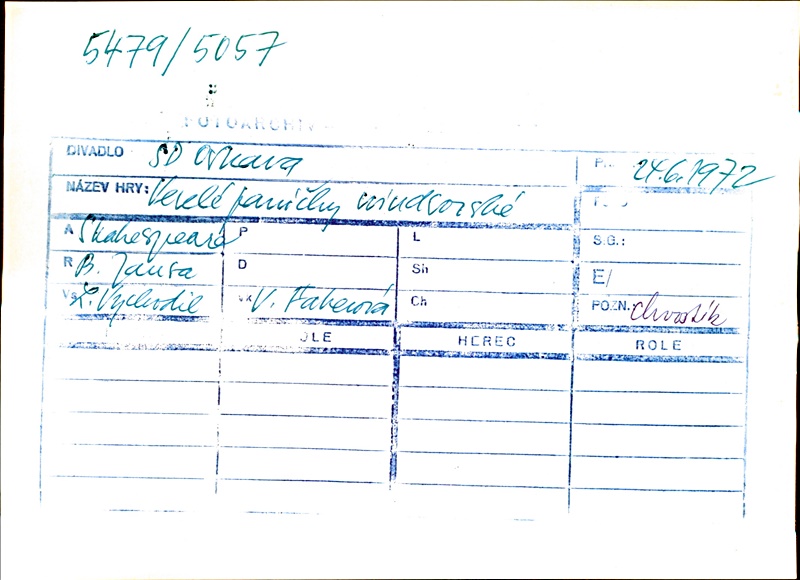 5479/5057
FOTOARCHIV
DIVADLO SD Ostrava P... 24.6.1972
NÁZEV HRY: Veselé paničky windsorské
A Shakespeare P L S.G.:
R B. Jansa D Sh E/
Vs L. Vychodil VK V. Faberová Ch POZN. chvostík
ROLE HEREC ROLE